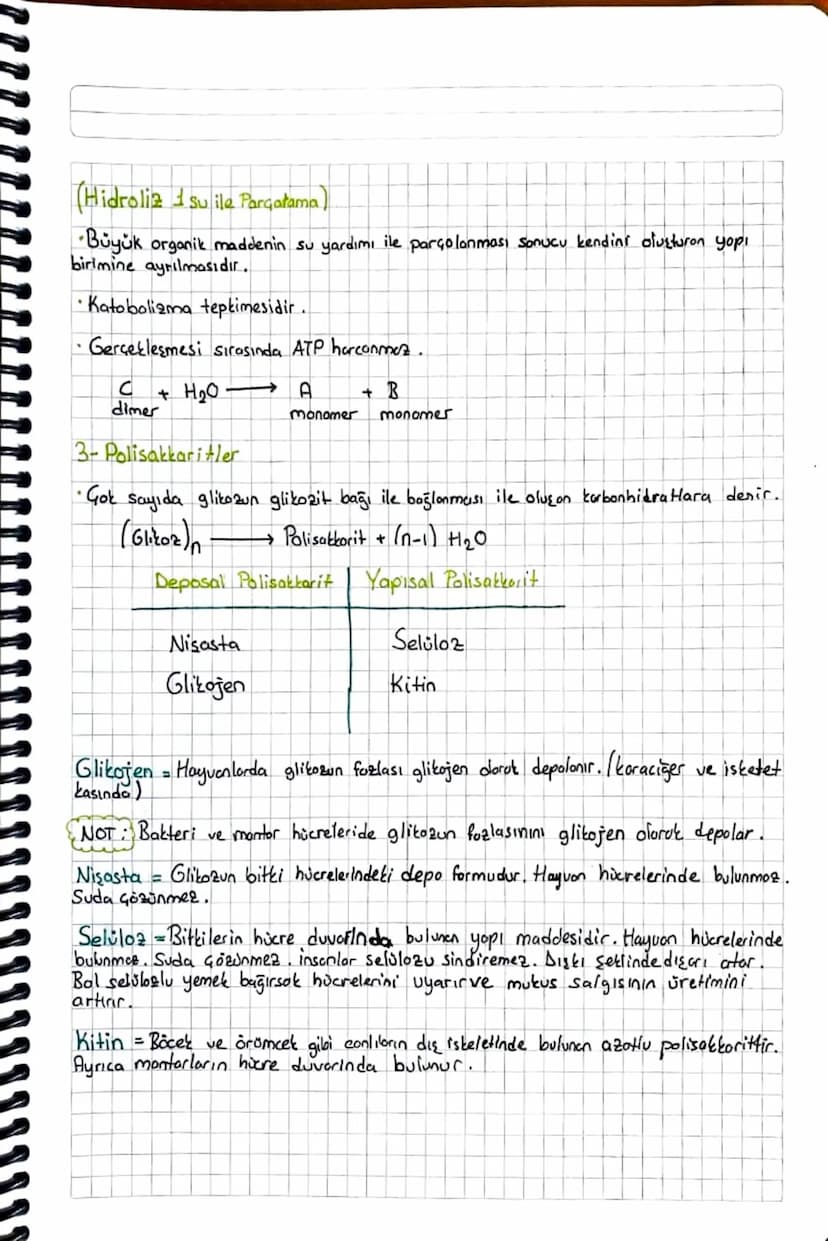 (Hidroliz 1 su ile Parçalama)
· Büyük organik maddenin su yardımı ile parçalanması sonucu kendini oluşturan yapı
birimine ayrılmasıdır.
· Katabolizma tepkimesidir.
· Gerçekleşmesi sırasında ATP harcanmaz.
C + H₂O ⟶ A + B
dimer monomer monomer
3- Polisakkaritler
· Çok sayıda glikozun glikozit bağı ile bağlanması ile oluşan karbonhidratlara denir.
(Glikoz)n ⟶ Polisakkarit + (n-1) H₂O
Deposal Polisakkarit Yapısal Polisakkarit
Nişasta Selüloz
Glikojen Kitin
Glikojen = Hayvanlarda glikozun fazlası glikojen olarak depolanır. (karaciğer ve iskelet
kasında)
NOT: Bakteri ve mantar hücreleride glikozun fazlasınını glikojen olarak depolar.
Nişasta = Glikozun bitki hücrelerindeki depo formudur. Hayvan hücrelerinde bulunmaz.
Suda çözünmez.
Selüloz = Bitkilerin hücre duvarında bulunan yapı maddesidir. Hayvan hücrelerinde
bulunmaz. Suda çözünmez. insanlar selülozu sindiremez. Dışkı şeklinde dışarı atar.
Bol selülozlu yemek bağırsak hücrelerini uyarır ve mukus salgısının üretimini
artırır.
Kitin = Böcek ve örümcek gibi canlıların dış iskeletinde bulunan azotlu polisakkarittir.
Ayrıca mantarların hücre duvarında bulunur.